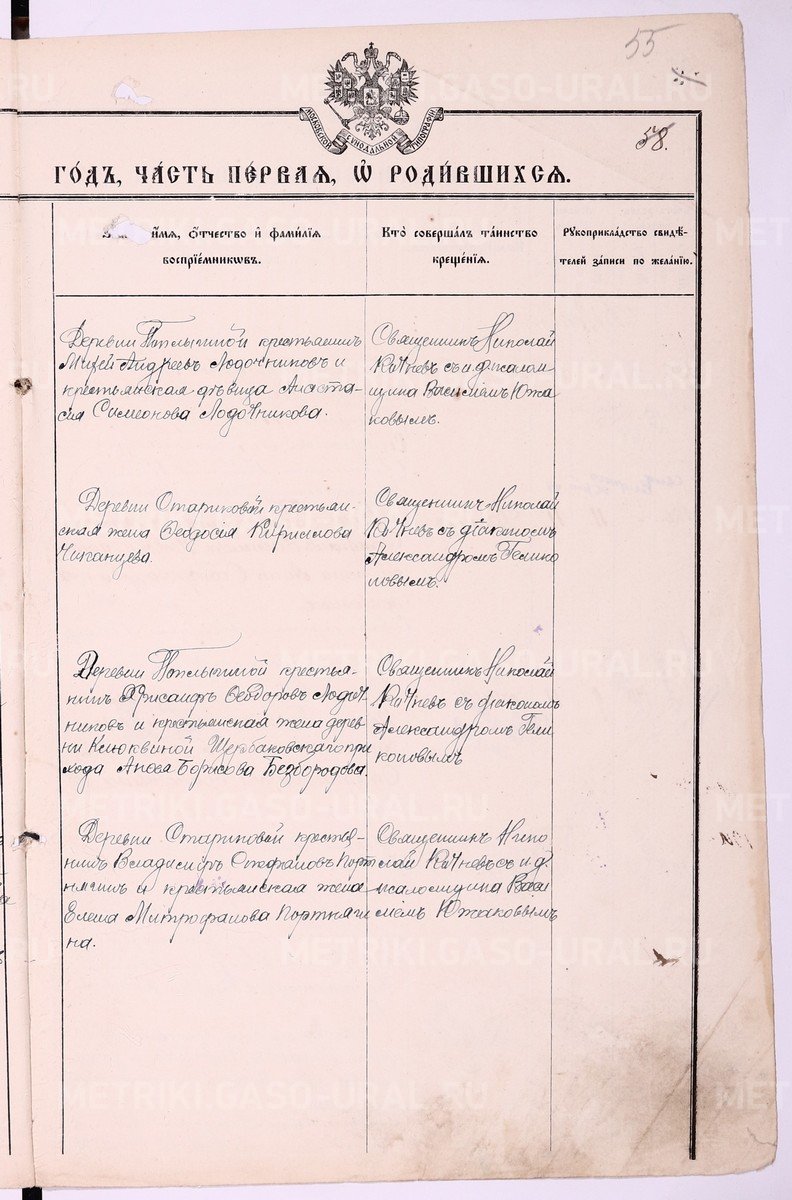 55
58.
МОСКОВСКОЙ СѴНОДАЛЬНОЙ ТИПОГРАФІИ
ГО́ДЪ, ЧА́СТЬ ПЕ́РВАЯ, Ѽ РОДИ́ВШИХСЯ.
и҆́мѧ, ѻ҆́тчество и҆ фами́лїѧ
воспрїе́мникѡвъ.
Кто̀ соверша́лъ та́инство
креще́нїѧ.
Рꙋкоприкла́дство свидѣ́-
телей за́писи по жела́нїю.
Деревни крестьянинъ
Андреевъ Лодочниковъ и
крестьянская дѣвица Анаста-
сія Симеонова Лодочникова.
Священникъ Николай
съ и.д. псалом-
щика Василіемъ Южа
ковымъ.
Деревни Стариковой крестьян-
ская жена Ѳеодосія Кирилова
Священникъ Николай
съ діакономъ
Александромъ Гелико
новымъ.
Деревни крестья-
нинъ Хрисанфъ Ѳеодоровъ Лодоч-
никовъ и крестьянская жена дерев
ни Клюквиной Щербаковскаго при
хода Борисова Безбородова.
Священникъ Николай
съ діакономъ
Александромъ Гели
коновымъ
Деревни Стариковой крестья-
нинъ Владимиръ Стефановъ Порт
нягинъ и крестьянская жена
Елена Митрофанова Портняги
на.
Священникъ Нико
лай съ и.д.
псаломщика Васи
ліемъ Южаковымъ
METRIKI.GASO-URAL.RU